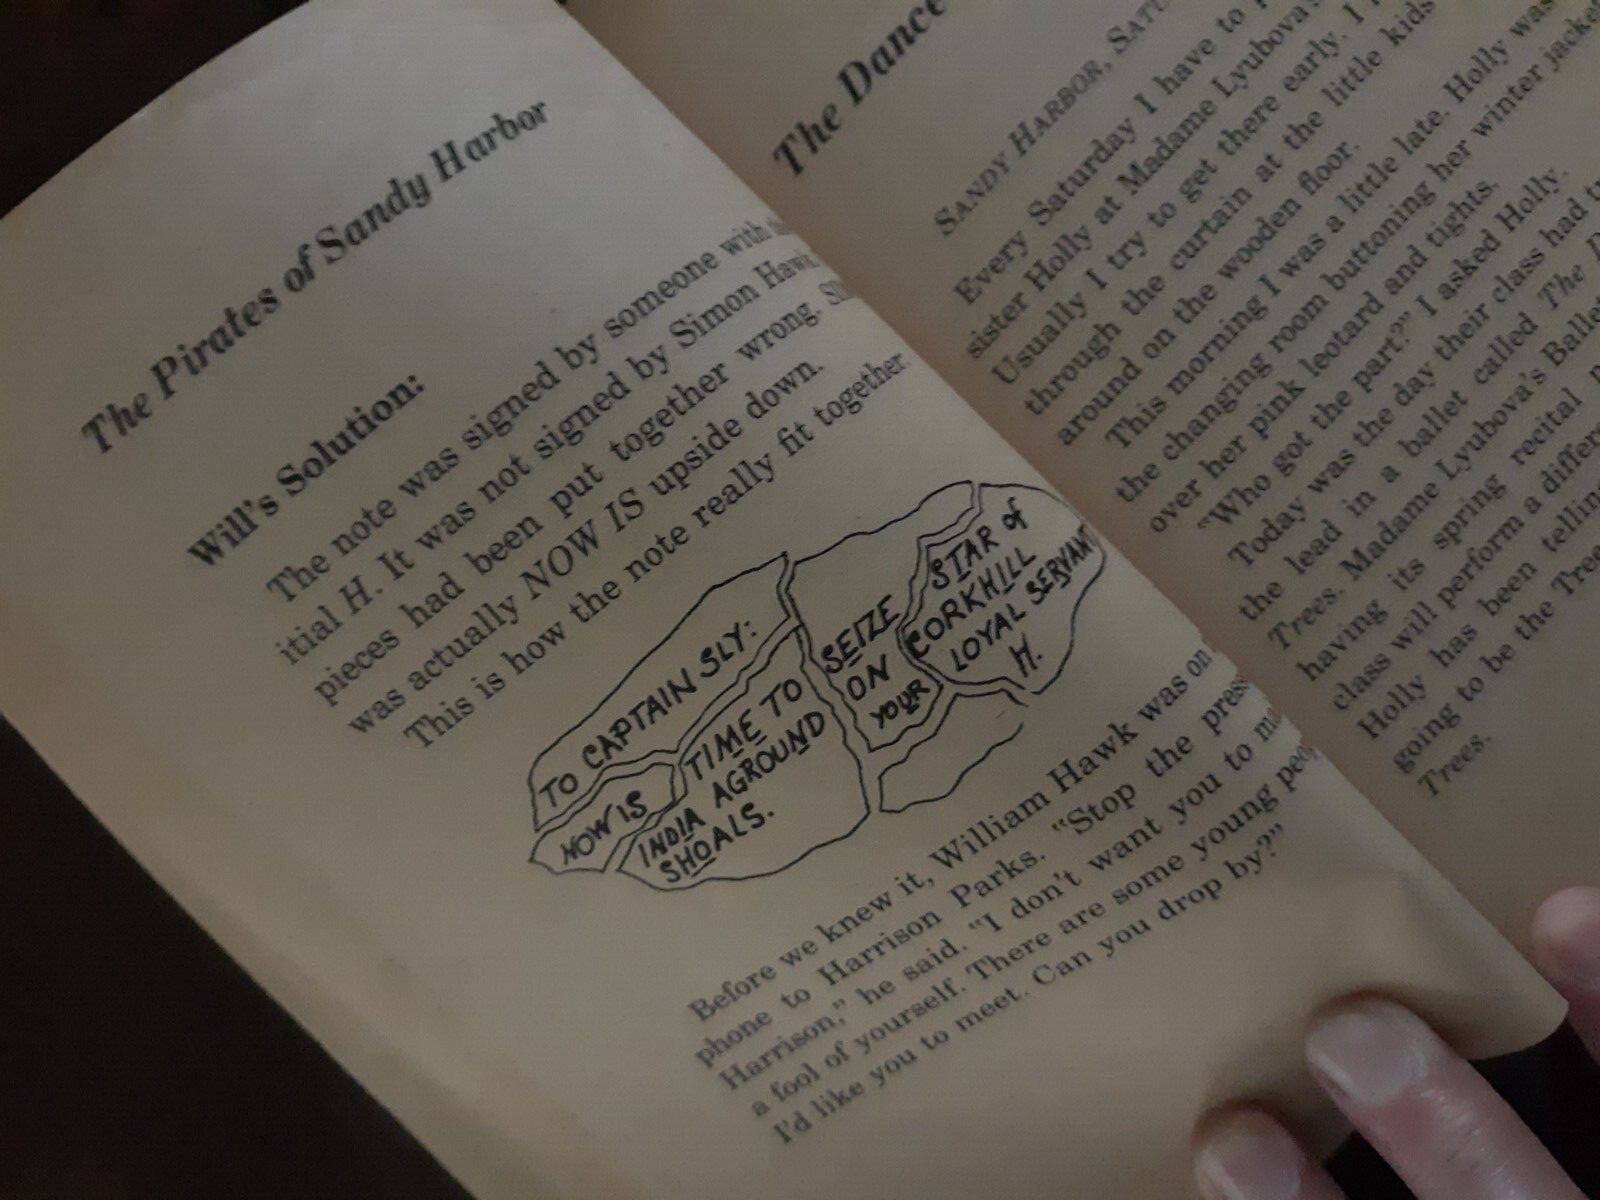 The Pirates of Sandy Harbor
Will's Solution:
The note was signed by someone with
itial H. It was not signed by Simon Hawk.
pieces had been put together wrong.
was actually NOW IS upside down.
This is how the note really fit together.
TO CAPTAIN SLY:
NOW IS
TIME TO
INDIA AGROUND
SHOALS.
SEIZE
ON
YOUR
STAR of
CORKHILL
LOYAL SERVANT
H.
Before we knew it, William Hawk was on
phone to Harrison Parks. "Stop the press
Harrison," he said. "I don't want you to
a fool of yourself. There are some young
I'd like you to meet. Can you drop by?"
The Dance
SANDY HARBOR,
Every Saturday I have to
sister Holly at Madame Lyubova's
Usually I try to get there early. I
through the curtain at the little kids
around on the wooden floor.
This morning I was a little late. Holly was
the changing room buttoning her winter jacket
over her pink leotard and tights.
"Who got the part?" I asked Holly.
Today was the day their class had
the lead in a ballet called The
Trees. Madame Lyubova's Ballet
having its spring recital
class will perform a
Holly has been telling
going to be the
Trees.